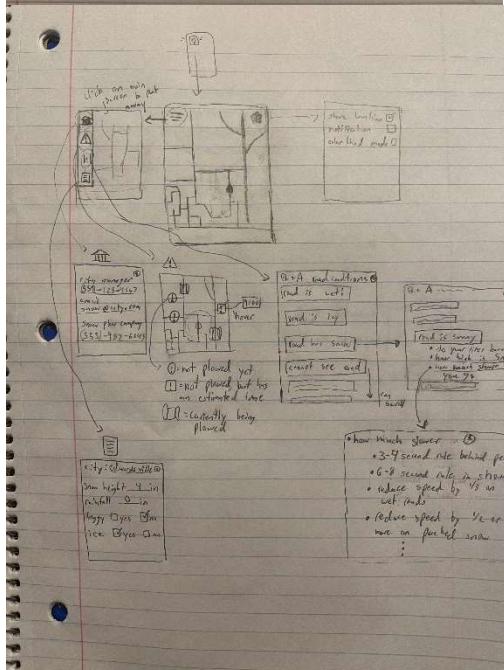 click on main
share location
notification
color blind mode
city manager
email
snow@city.com
snow plow company
hover
① = not plowed yet
= not plowed but has
an estimated time
= currently being
plowed
Q + A road conditions
road is wet
road is icy
road has snow
cannot see road
can
scroll
Q + A
road is snowy
how much slower
• how much slower
• 3-4 second rule behind
• 6-8 second rule in
• reduce speed by 1/3 on
wet roads
• reduce speed by 1/2 or
more on packed snow
city:
snow height 4 in
rainfall 0 in
foggy yes no
ice yes no